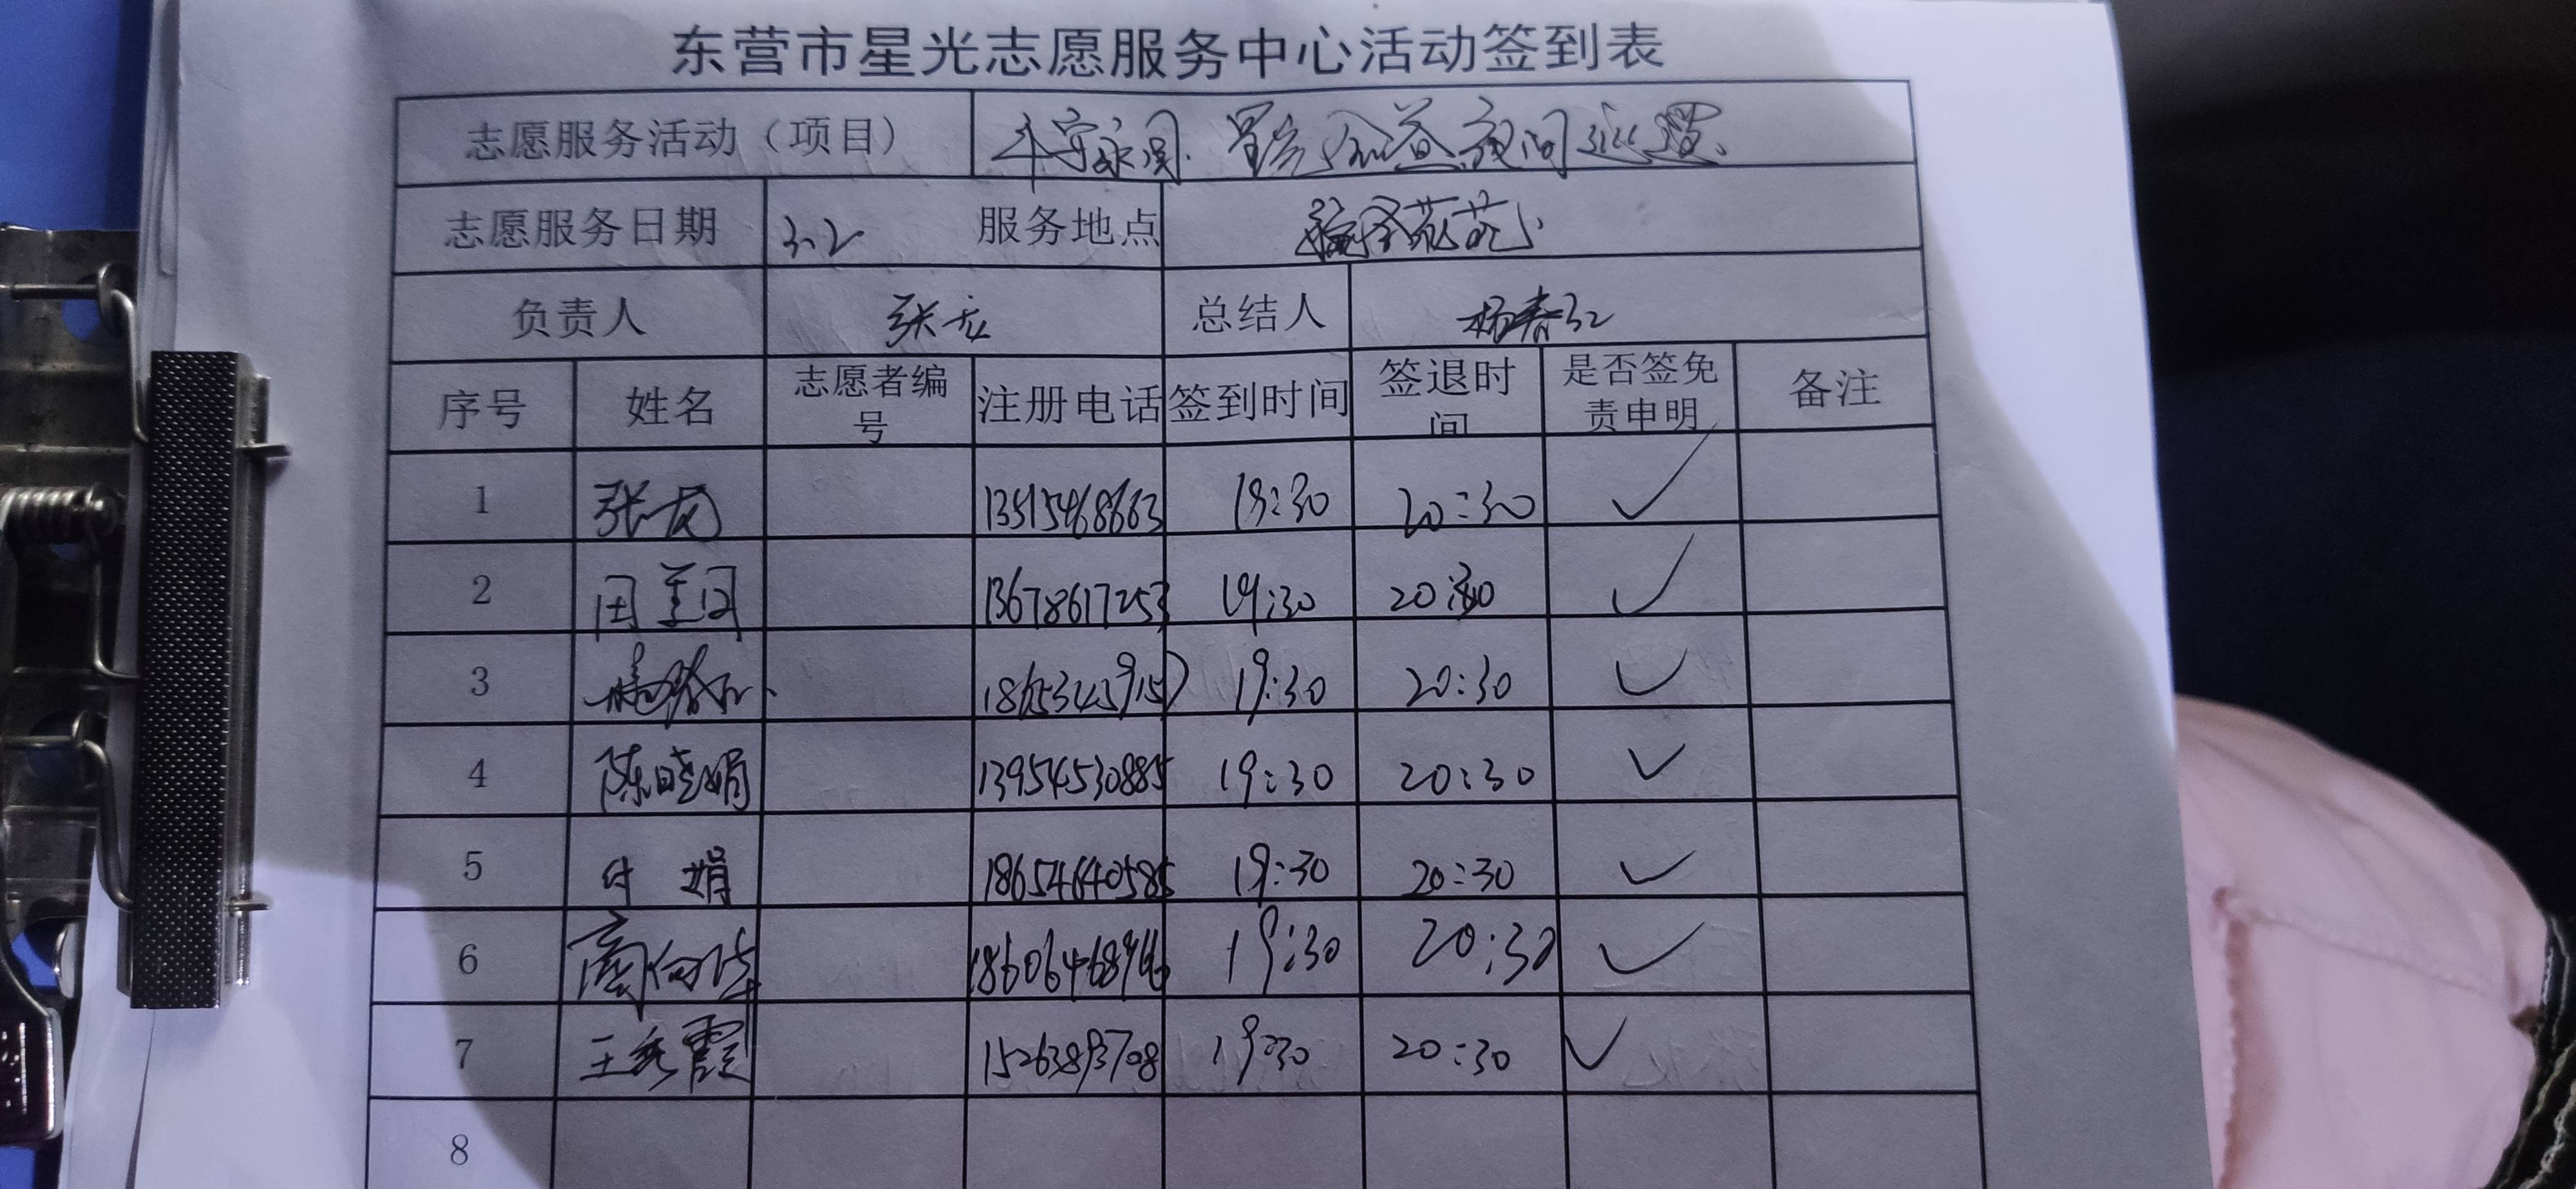 东营市星光志愿服务中心活动签到表
志愿服务活动（项目） 星光公益夜间巡逻
志愿服务日期 3.2 服务地点
负责人 张龙 总结人 杨春红
序号 姓名 志愿者编号 注册电话 签到时间 签退时间 是否签免责申明 备注
1 张龙 13515468663 19:30 20:30 ✓
2 13678617253 19:30 20:30 ✓
3 杨春红 19:30 20:30 ✓
4 陈晓娟 13954530885 19:30 20:30 ✓
5 付娟 18654640585 19:30 20:30 ✓
6 19:30 20:30 ✓
7 王秀霞 19:30 20:30 ✓
8